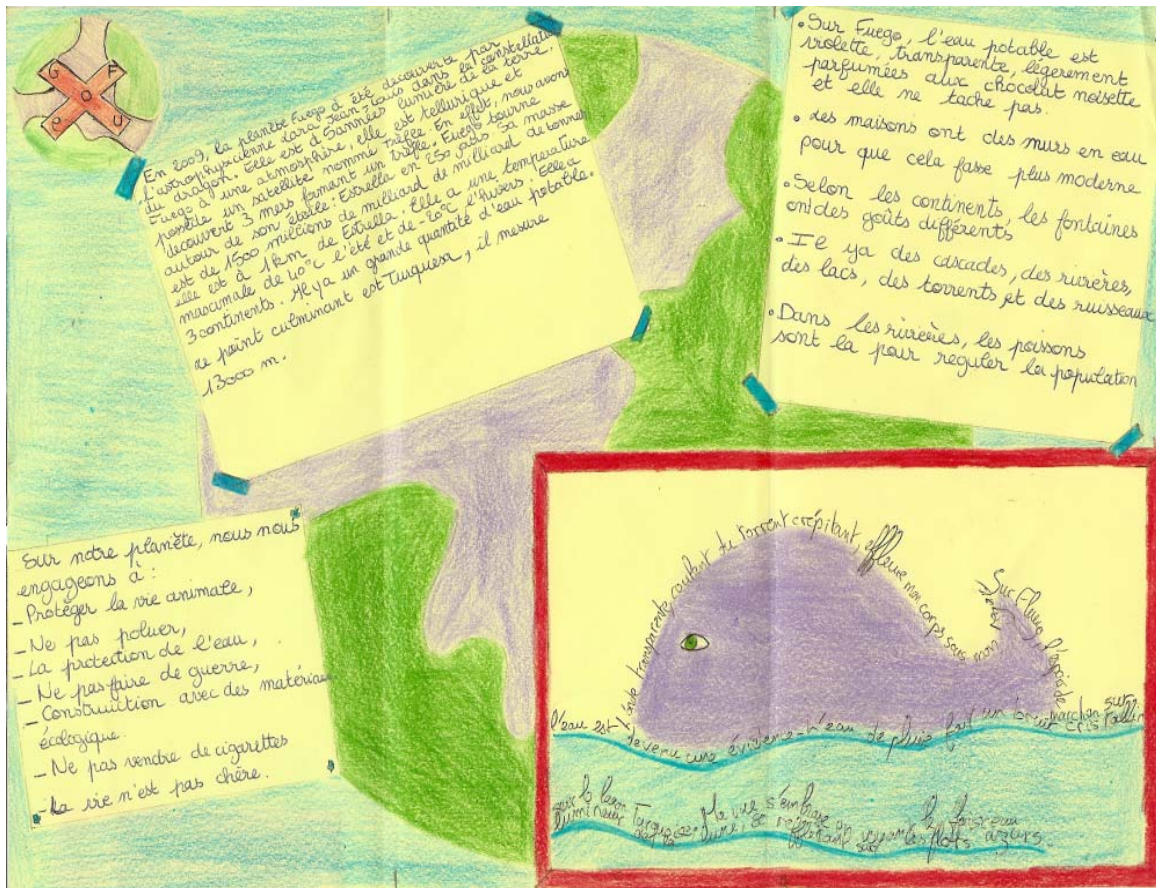 G F
O
e U
En 2009, la planète Fuego a été découverte par
l'astrophysicienne Lara Jean-Louis dans la constellation
du dragon. Elle est à 5 années lumière de la terre.
Fuego à une atmosphère, elle est tellurique et
possède un satellite nommé Trèfle. En effet, nous avons
découvert 3 mers formant un trèfle. Fuego tourne
autour de son étoile: Estrella en 250 jours. Sa masse
est de 1500 millions de milliard de milliard de tonnes
elle est à 1km de Estrella. Elle a une température
maximale de 40°C l'été et de -20°C l'hivers. Elle a
3 continents. Il ya un grande quantité d'eau potable.
Le point culminant est Turquesa, il mesure
13000 m.
• Sur Fuego, l'eau potable est
violette, transparente, légerement
parfumées aux chocolat noisette
et elle ne tache pas.
• Les maisons ont des murs en eau
pour que cela fasse plus moderne
• Selon les continents, les fontaines
ont des goûts différents
• Il ya des cascades, des rivières,
des lacs, des torrents et des ruisseaux
• Dans les rivières, les poissons
sont la pour reguler la population
Sur notre planète, nous nous
engageons à :
- Protéger la vie animale,
- Ne pas poluer,
- La protection de l'eau,
- Ne pas faire de guerre,
- Construction avec des matériaux
écologique.
- Ne pas vendre de cigarettes
- La vie n'est pas chère.
L'onde transparente coulant du torrent crépitant effleure mon corps sous mon
Sur
marcher sur
l'eau est devenu une évidence - L'eau de pluie fait un bruit cristallin
sur le lagon Turquoise Ma vue s'embrase en voyant le faisceau
lumineux de la lune, se reflétant sur les flots azurs.